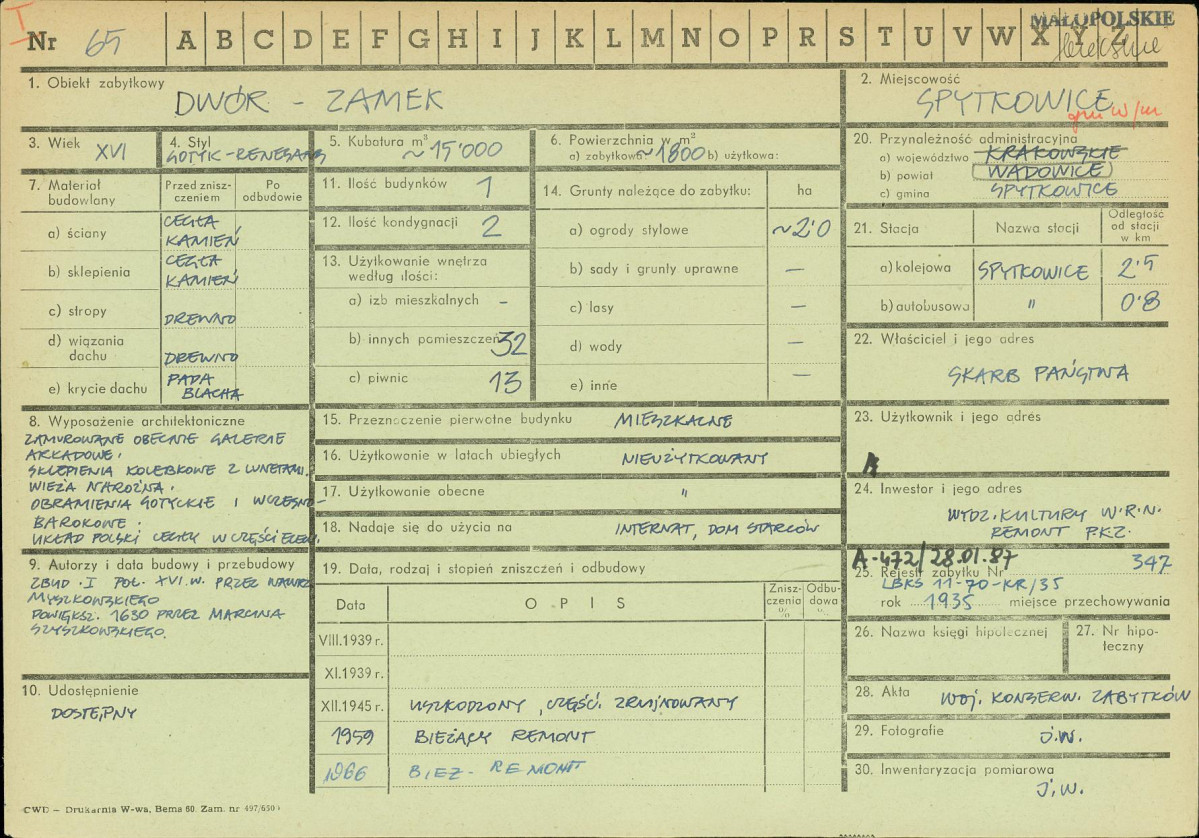 I
Nr 65 A B C D E F G H I J K L M N O P R S T U V W X Y Z
MAŁOPOLSKIE
1. Obiekt zabytkowy
DWÓR - ZAMEK
2. Miejscowość
SPYTKOWICE
3. Wiek XVI
4. Styl
GOTYK-RENESANS
5. Kubatura m³
~15'000
6. Powierzchnia w m²
a) zabytkowa ~1800 b) użytkowa:
20. Przynależność administracyjna
a) województwo KRAKOWSKIE
b) powiat WADOWICE
c) gmina SPYTKOWICE
7. Materiał budowlany
Przed znisz-
czeniem
Po
odbudowie
a) ściany
CEGŁA
KAMIEŃ
b) sklepienia
CEGŁA
KAMIEŃ
c) stropy DREWNO
d) wiązania
dachu DREWNO
e) krycie dachu
PAPA
BLACHA
11. Ilość budynków 1
12. Ilość kondygnacji 2
13. Użytkowanie wnętrza
według ilości:
a) izb mieszkalnych -
b) innych pomieszczeń 32
c) piwnic 13
14. Grunty należące do zabytku: ha
a) ogrody stylowe ~2'0
b) sady i grunty uprawne —
c) lasy —
d) wody —
e) inne —
21. Stacja Nazwa stacji
Odległość
od stacji
w km
a) kolejowa SPYTKOWICE 2'5
b) autobusowa " 0'8
22. Właściciel i jego adres
SKARB PAŃSTWA
8. Wyposażenie architektoniczne
ZAMUROWANE OBECNIE GALERIE
ARKADOWE.
SKLEPIENIA KOLEBKOWE Z LUNETAMI.
WIEŻA NAROŻNA.
OBRAMIENIA GOTYCKIE I WCZESNO-
BAROKOWE.
UKŁAD POLSKI CEGŁY W CZĘŚCI ELEW.
15. Przeznaczenie pierwotne budynku MIESZKALNE
16. Użytkowanie w latach ubiegłych NIEUŻYTKOWANY
17. Użytkowanie obecne "
18. Nadaje się do użycia na INTERNAT, DOM STARCÓW
23. Użytkownik i jego adres
24. Inwestor i jego adres
WYDZ. KULTURY W.R.N.
REMONT P.K.Z.
9. Autorzy i data budowy i przebudowy
ZBUD. I POŁ. XVI.W. PRZEZ WAWRZ.
MYSZKOWSKIEGO
POWIĘKSZ. 1630 PRZEZ MARCINA
SZYSZKOWSKIEGO.
19. Data, rodzaj i stopień zniszczeń i odbudowy
Data OPIS
Znisz-
czenia
%
Odbu-
dowa
%
VIII.1939 r.
XI.1939 r.
XII.1945 r. USZKODZONY, CZĘŚĆ. ZRUJNOWANY
1959 BIEŻĄCY REMONT
1966 BIEŻ- REMONT
A-472/28.01.87
25. Rejestr zabytku Nr 347
LBKS 11-70-KR/35
rok 1935 miejsce przechowywania
26. Nazwa księgi hipotecznej
27. Nr hipo-
teczny
10. Udostępnienie
DOSTĘPNY
28. Akta WOJ. KONSERW. ZABYTKÓW
29. Fotografie J.W.
30. Inwentaryzacja pomiarowa
J.W.
CWD — Drukarnia W-wa, Bema 60. Zam. nr 497/650